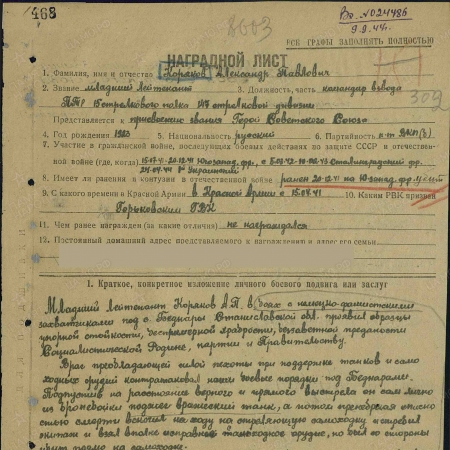 468
8603
Вх. № 024486
9.8.44г.
ВСЕ ГРАФЫ ЗАПОЛНЯТЬ ПОЛНОСТЬЮ
НАГРАДНОЙ ЛИСТ
309
1. Фамилия, имя и отчество Коряков Александр Павлович
2. Звание младший лейтенант 3. Должность, часть командир взвода
ПТР 15 стрелкового полка 147 стрелковой дивизии
Представляется к присвоению звания Герой Советского Союза
4. Год рождения 5. Национальность русский 6. Партийность к-т ВКП(б)
7. Участие в гражданской войне, последующих боевых действиях по защите СССР и отечествен-
ной войне (где, когда)
8. Имеет ли ранения и контузии в отечественной войне ранен 20.12.41 на Югозап. фр.
9. С какого времени в Красной Армии в Красной Армии с 15.04.41 10. Каким РВК призван
Горьковским ГВК
11. Чем ранее награжден (за какие отличия) не награждался
12. Постоянный домашний адрес представляемого к награждению и адрес его семьи
I. Краткое, конкретное изложение личного боевого подвига или заслуг
Младший лейтенант Коряков А.П. в боях с немецко-фашистскими
захватчиками под с. Беднары Станиславской обл. проявил образцы
упорной стойкости, беспримерной храбрости, беззаветной преданности
Социалистической Родине, партии и Правительству.
Враг превосходящей силой пехоты при поддержке танков и само
ходных орудий контратаковал наши боевые порядки под Беднарами.
Подпустив на расстояние верного и прямого выстрела он сам лично
из бронебойки поджег вражеский танк, а потом пренебрегая опасно
стью смерти вскочил на ходу на стреляющую самоходку и истребил
экипаж и взял вполне исправное самоходное орудие, но